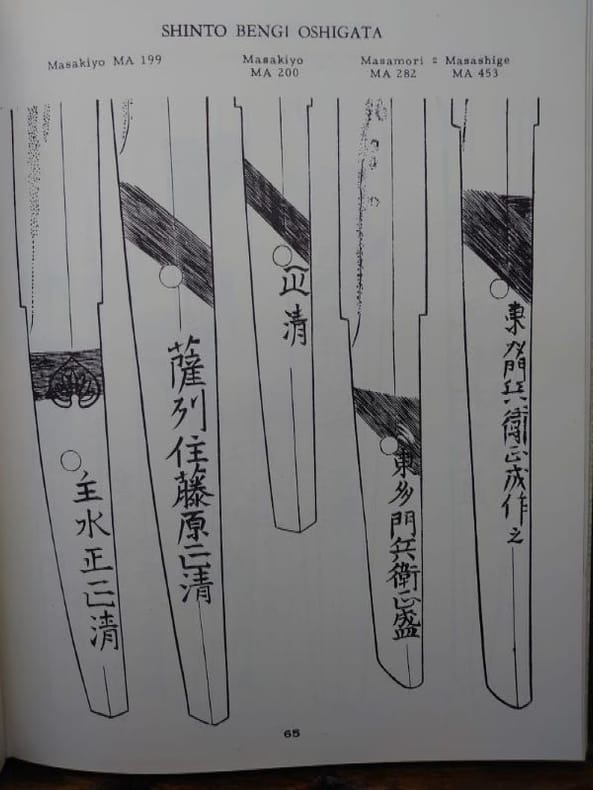 SHINTO BENGI OSHIGATA
Masakiyo MA 199
Masakiyo
MA 200
Masamori :
MA 282
Masashige
MA 453
主水正正清
薩列住藤原正清
正清
東多門兵衛正盛
東多門兵衛正成作之
65